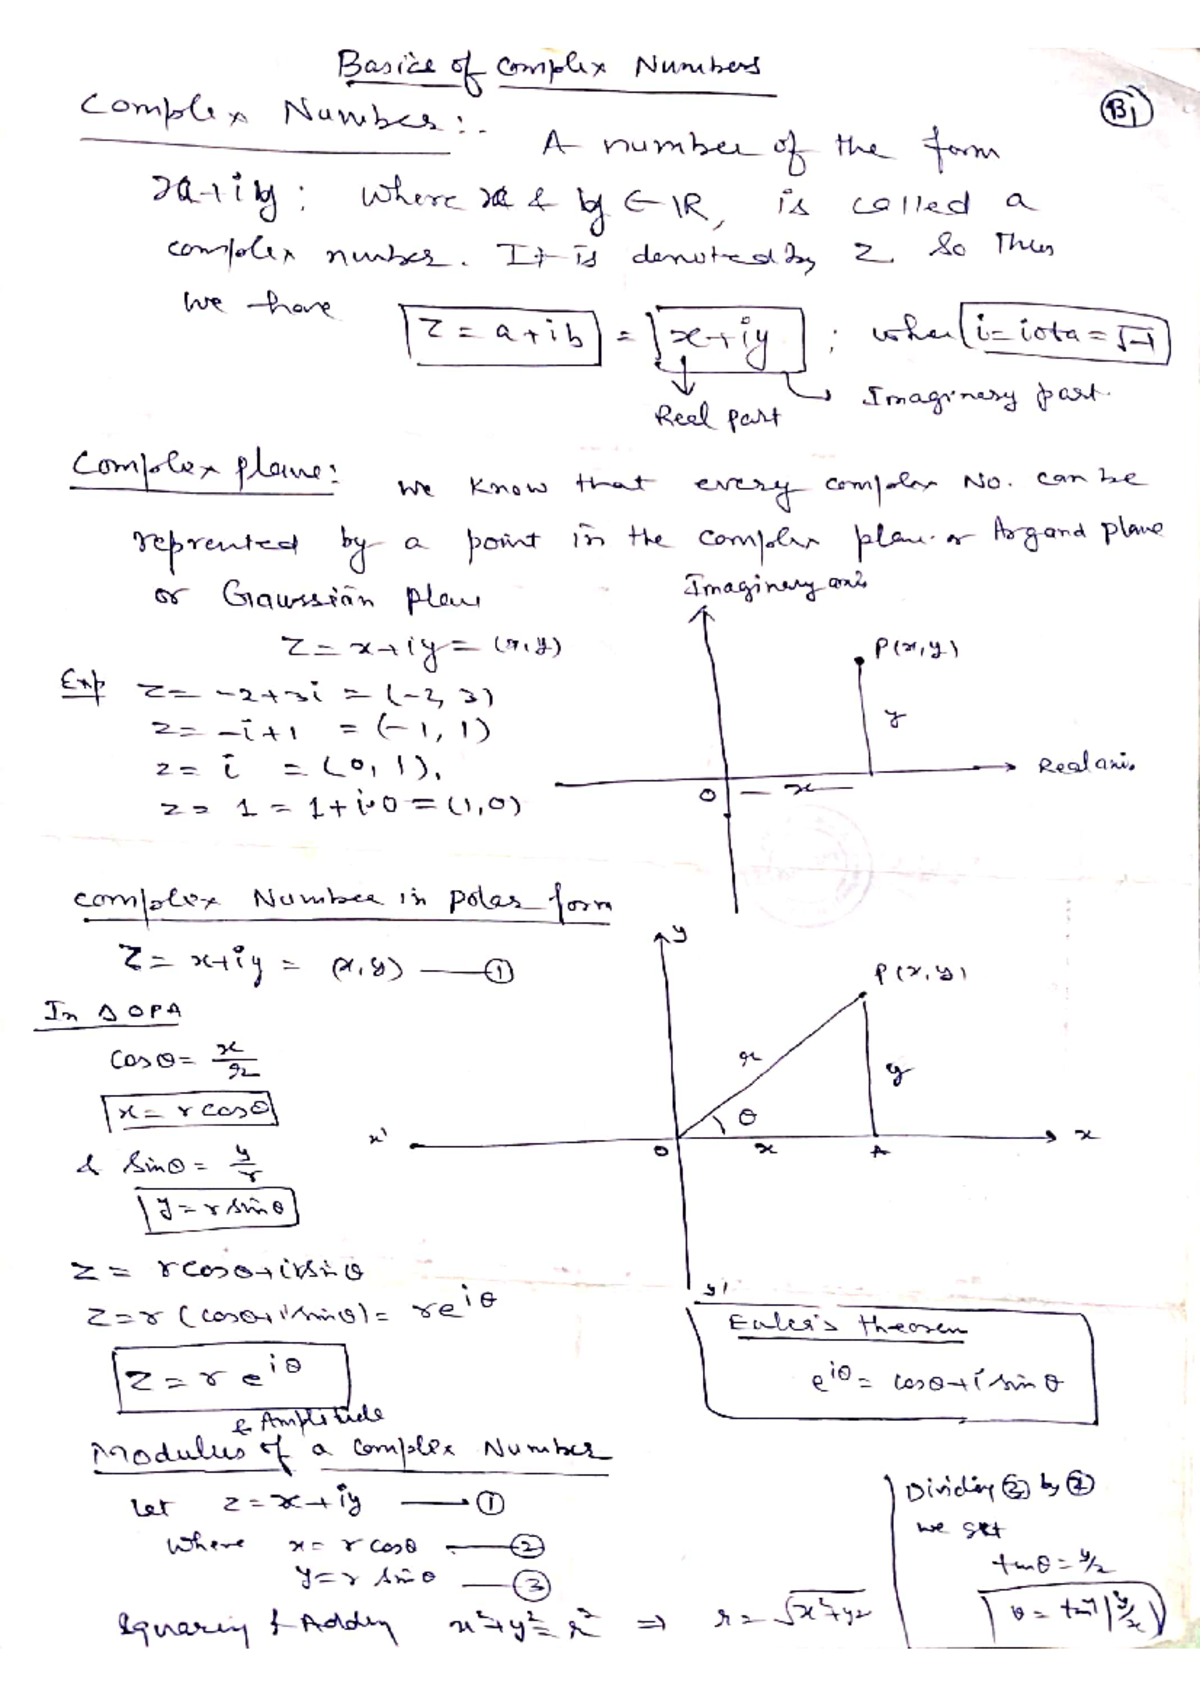 Basics of Complex Numbers
B1
Complex Number:-
A number of the form
x+iy : where x & y ∈ IR, is called a
complex number. It is denoted by z. So Thus
we have z = a+ib = x+iy ; where i = iota = √-1
Real part
Imaginary part.
Complex plane:
we know that every complex No. can be
reprented by a point in the complex plane or Argand plane
or Gaussian plane
Imaginary axis
z = x+iy = (x,y)
P(x,y)
Exp z = -2+3i = (-2, 3)
z = -i+1 = (-1, 1)
y
z = i = (0, 1).
Real axis
z = 1 = 1+i.0 = (1,0)
O
x
Complex Number in polar form
y
z = x+iy = (x,y) — ①
P(x,y)
In Δ OPA
cosθ = x/r
r
y
x = r cosθ
θ
x'
O
x
A
x
& Sinθ = y/r
y = r sinθ
z = rcosθ+irsinθ
y'
z = r (cosθ+isinθ) = re^iθ
Euler's theorem
z = r e^iθ
e^iθ = cosθ+i sinθ
& Amplitude
Modulus of a Complex Number
Let z = x+iy — ①
where x = r cosθ — ②
y = r sinθ — ③
Squaring & Adding x²+y² = r² ⇒ r = √x²+y²
Dividing ③ by ②
we get
tanθ = y/x
θ = tan⁻¹|y/x|